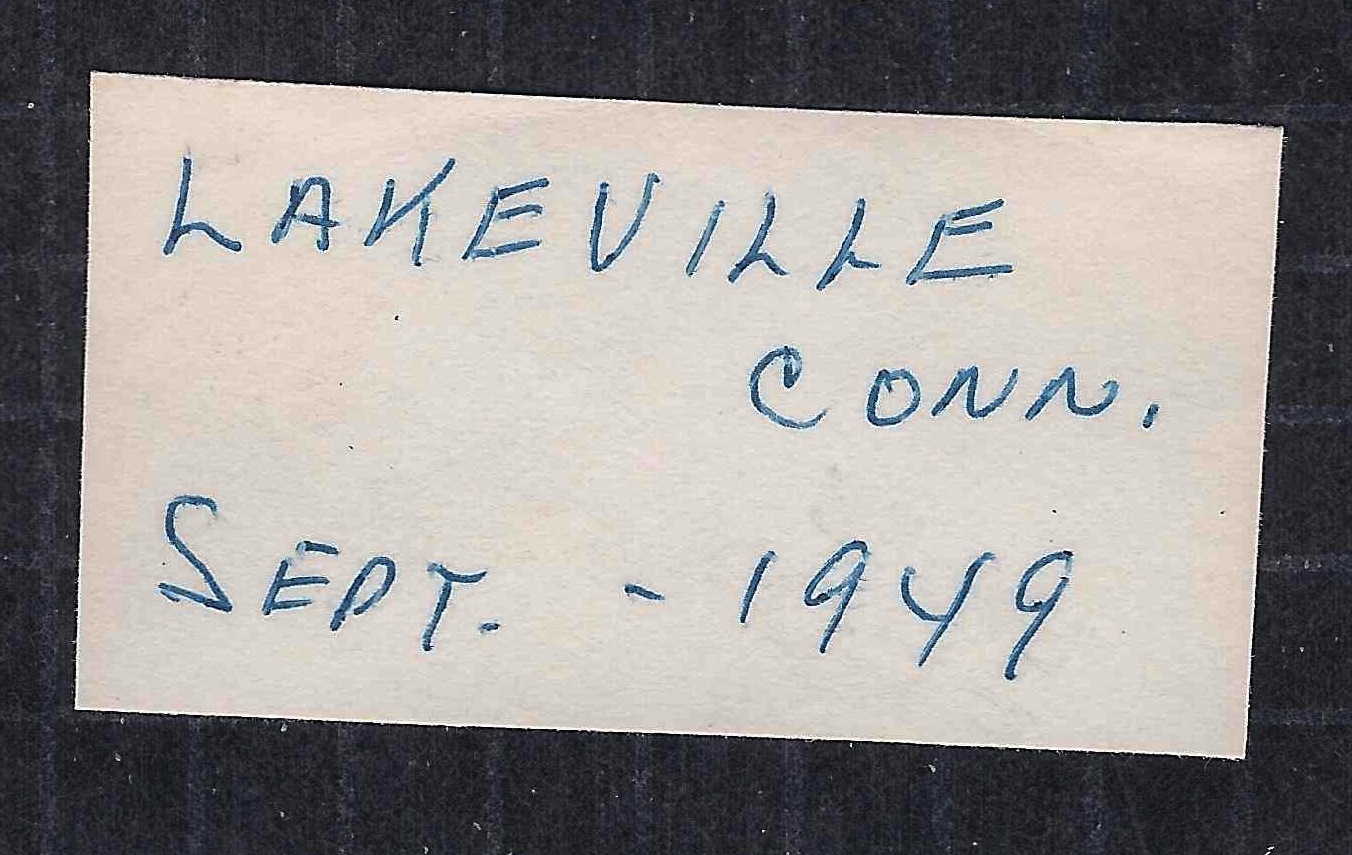 LAKEVILLE
CONN.
SEPT. - 1949